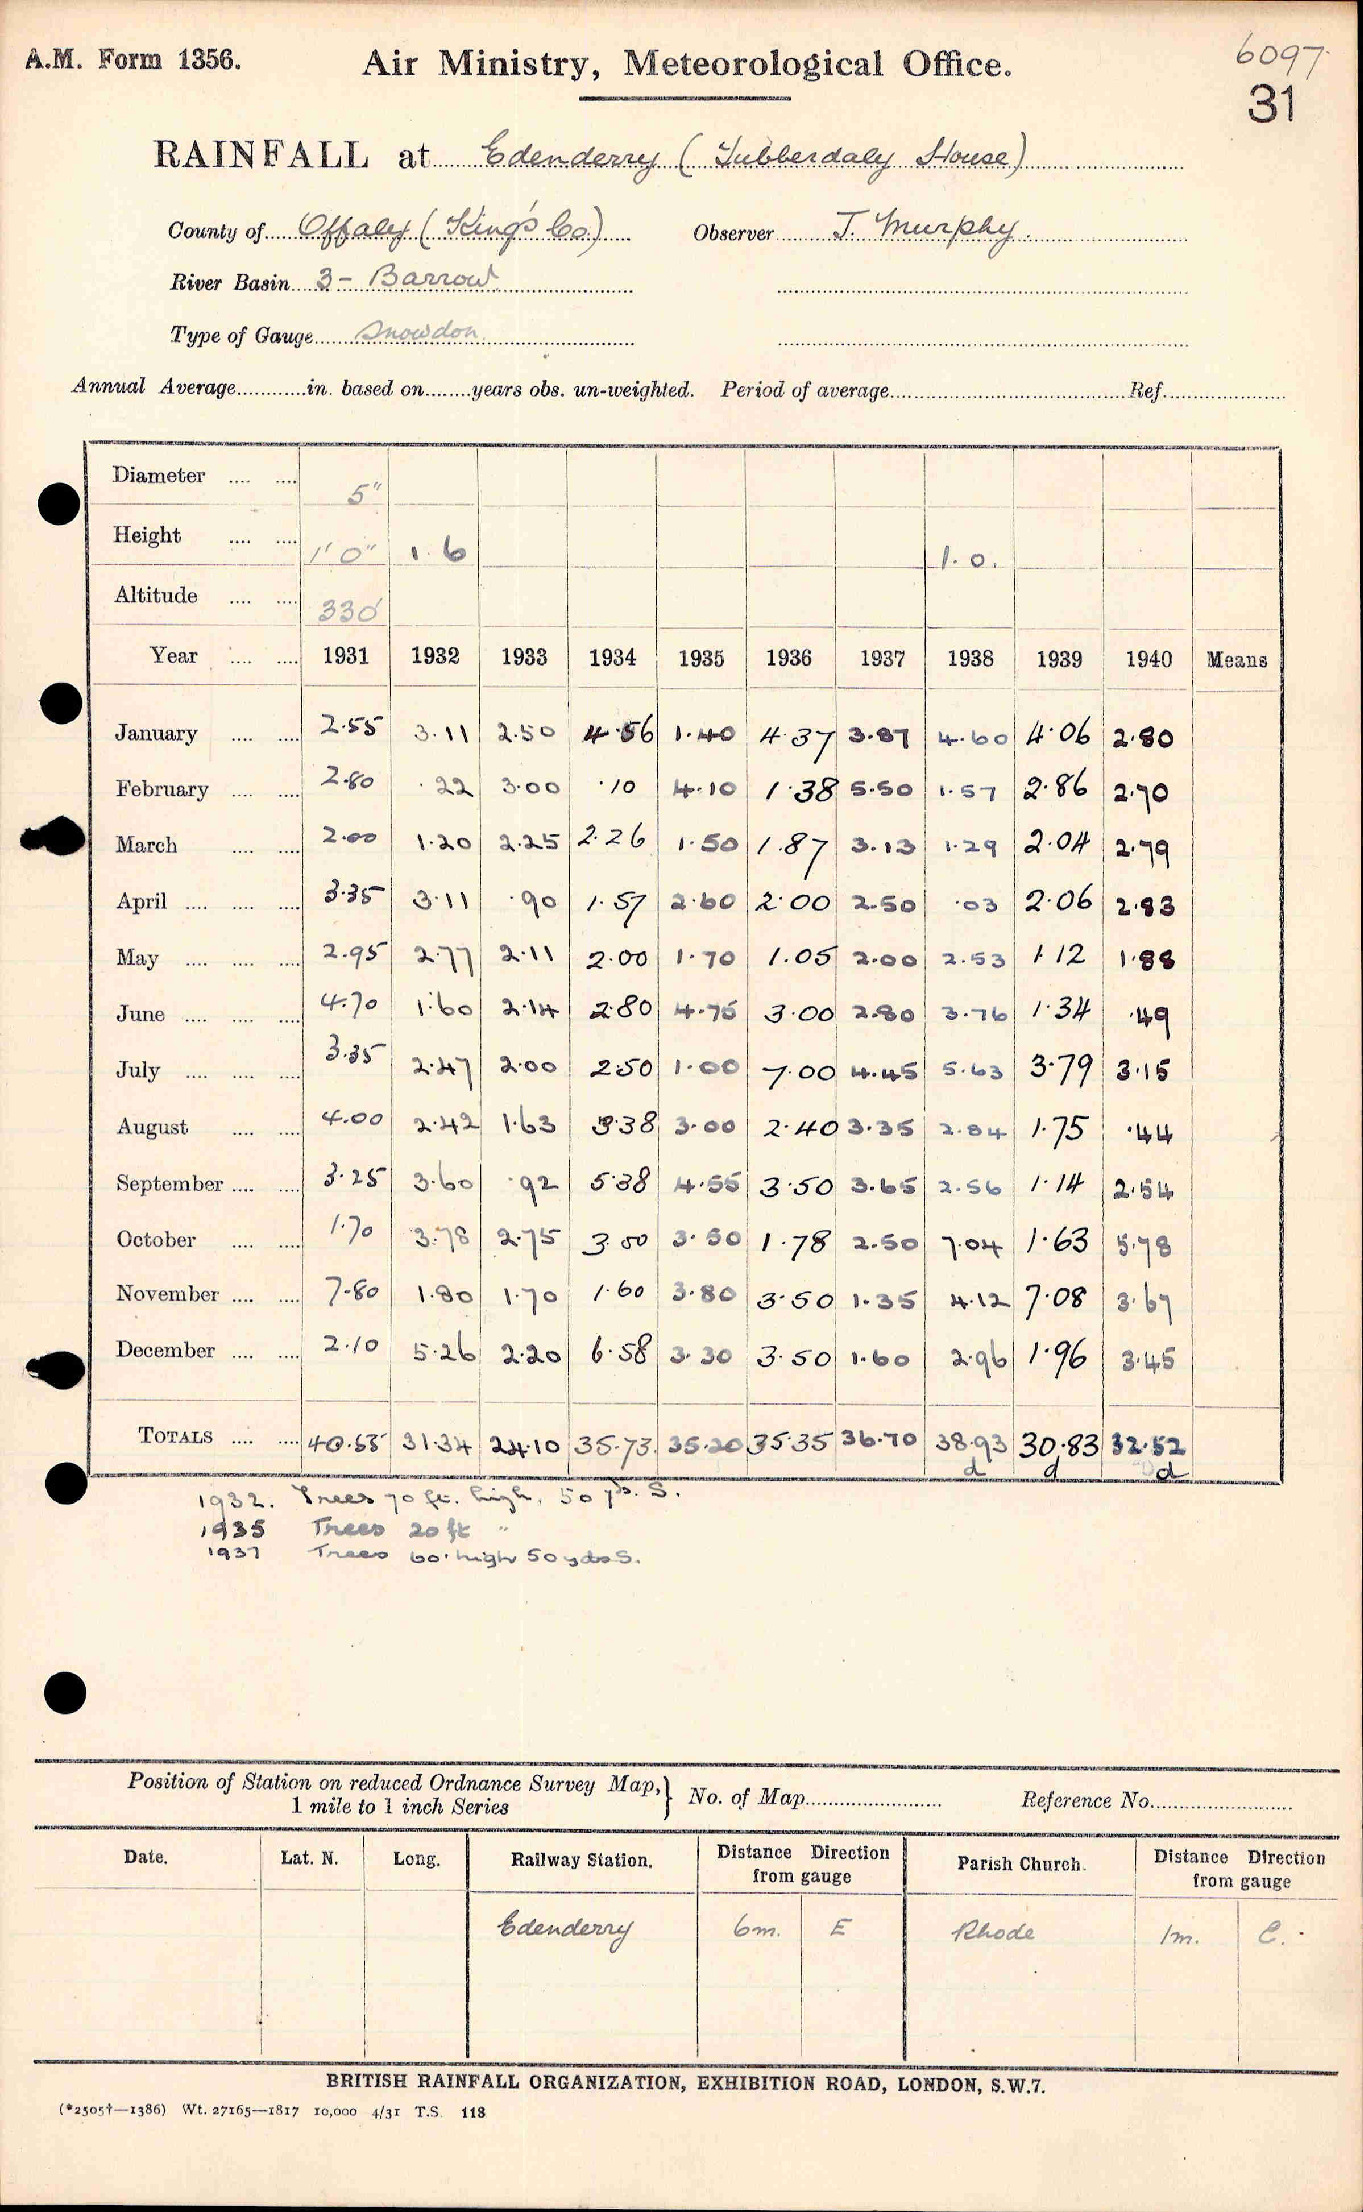 A.M. Form 1356.
Air Ministry, Meteorological Office.
6097
31
RAINFALL at Edenderry (Tubberdaly House)
County of Offaly (King's Co.) Observer T. Murphy.
River Basin 3 - Barrow
Type of Gauge Snowdon
Annual Average............in. based on........years obs. un-weighted. Period of average.......... Ref..........
Diameter .... .... 5"
Height .... .... 1' 0" 1. 6 1. 0.
Altitude .... .... 330'
Year .... .... 1931 1932 1933 1934 1935 1936 1937 1938 1939 1940 Means
January .... .... 2.55 3.11 2.50 4.56 1.40 4.37 3.87 4.60 4.06 2.80
February .... .... 2.80 .22 3.00 .10 4.10 1.38 5.50 1.57 2.86 2.70
March .... .... 2.00 1.20 2.25 2.26 1.50 1.87 3.13 1.29 2.04 2.79
April .... .... .... 3.35 3.11 .90 1.57 2.60 2.00 2.50 .03 2.06 2.83
May .... .... .... 2.95 2.77 2.11 2.00 1.70 1.05 2.00 2.53 1.12 1.88
June .... .... .... 4.70 1.60 2.14 2.80 4.75 3.00 2.80 3.76 1.34 .49
July .... .... .... 3.35 2.47 2.00 2.50 1.00 7.00 4.45 5.63 3.79 3.15
August .... .... 4.00 2.42 1.63 3.38 3.00 2.40 3.35 2.84 1.75 .44
September .... .... 3.25 3.60 .92 5.38 4.55 3.50 3.65 2.56 1.14 2.54
October .... .... 1.70 3.78 2.75 3.00 3.50 1.78 2.50 7.04 1.63 5.78
November .... .... 7.80 1.80 1.70 1.60 3.80 3.50 1.35 4.12 7.08 3.67
December .... .... 2.10 5.26 2.20 6.58 3.30 3.50 1.60 2.96 1.96 3.45
TOTALS .... .... 40.55 31.34 24.10 35.73 35.20 35.35 36.70 38.93 30.83 32.52
d d d
1932. Trees 70 ft. high, 50 yds. S.
1935 Trees 20 ft "
1937 Trees 60' high 50 yds S.
Position of Station on reduced Ordnance Survey Map,} No. of Map.......... Reference No..........
1 mile to 1 inch Series
Date. Lat. N. Long. Railway Station. Distance Direction from gauge Parish Church. Distance Direction from gauge
Edenderry 6m. E Rhode 1m. E.
BRITISH RAINFALL ORGANIZATION, EXHIBITION ROAD, LONDON, S.W.7.
(*2505†—1386) Wt. 27165—1817 10,000 4/31 T.S. 118